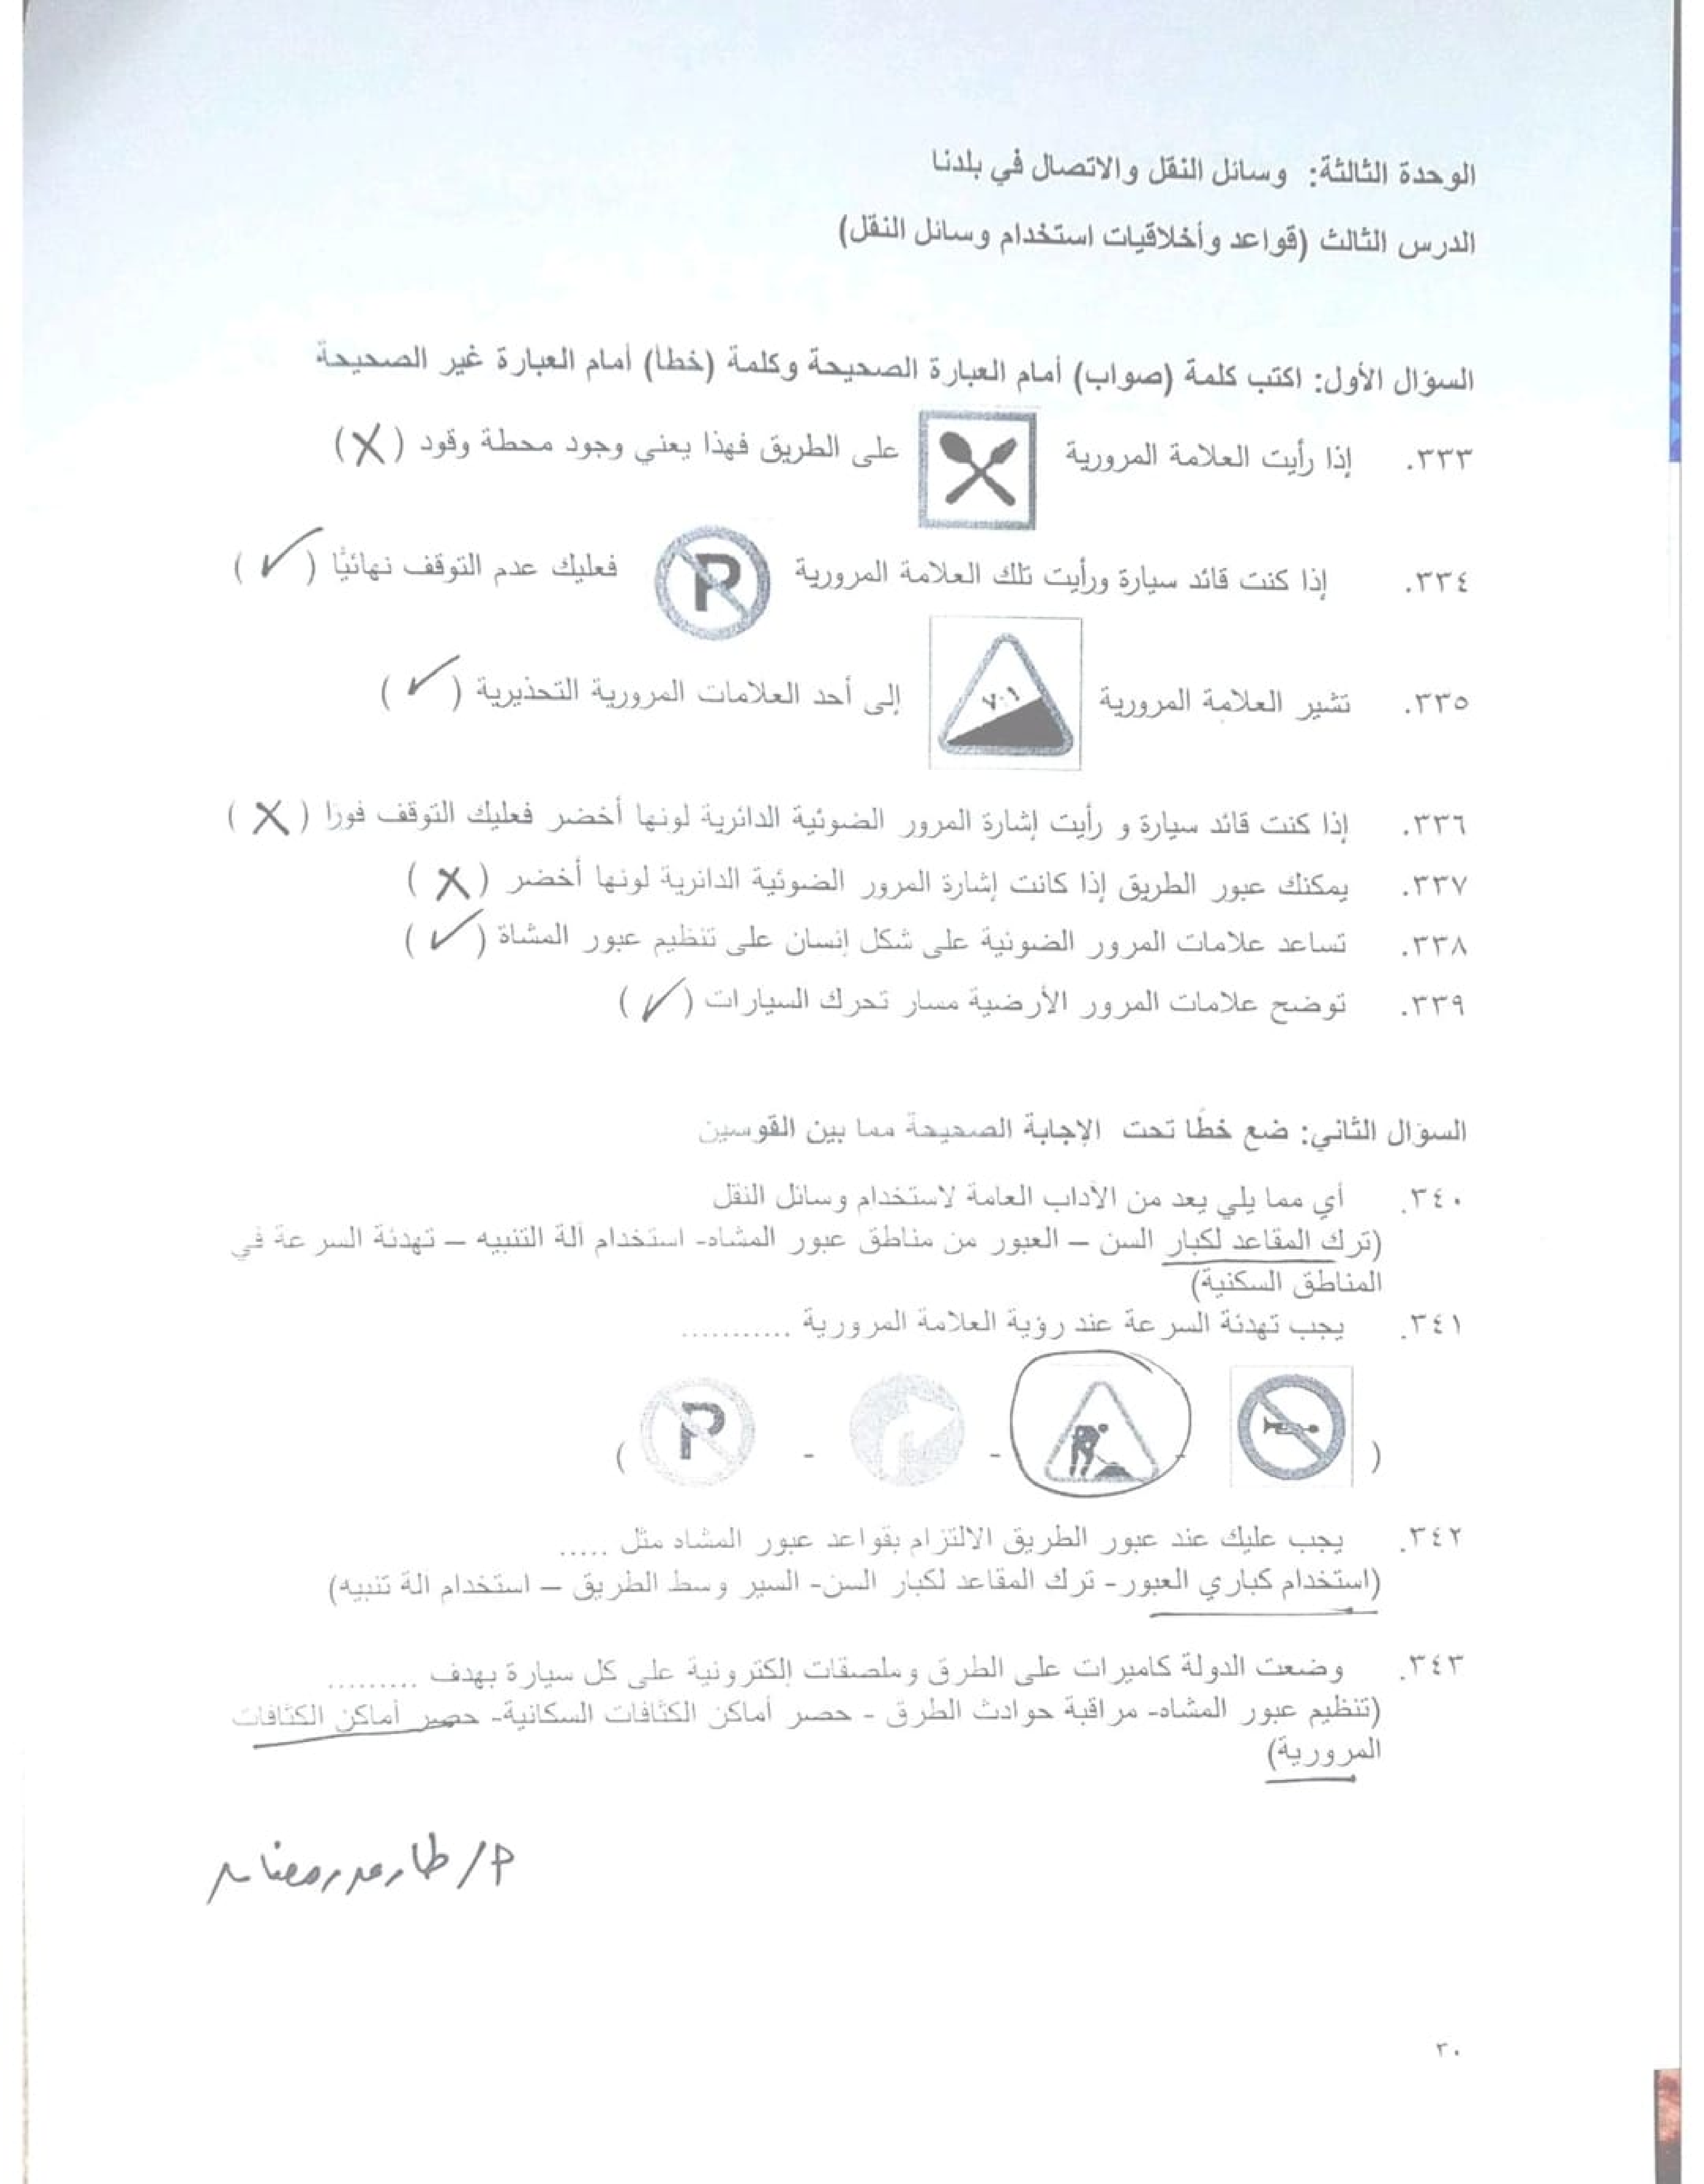 الوحدة الثالثة: وسائل النقل والاتصال في بلدنا
الدرس الثالث (قواعد وأخلاقيات استخدام وسائل النقل)
السؤال الأول: اكتب كلمة (صواب) أمام العبارة الصحيحة وكلمة (خطأ) أمام العبارة غير الصحيحة
٣٣٣. إذا رأيت العلامة المرورية على الطريق فهذا يعني وجود محطة وقود (X)
٣٣٤. إذا كنت قائد سيارة ورأيت تلك العلامة المرورية P فعليك عدم التوقف نهائيًا (✓)
٣٣٥. تشير العلامة المرورية إلى أحد العلامات المرورية التحذيرية (✓)
٣٣٦. إذا كنت قائد سيارة و رأيت إشارة المرور الضوئية الدائرية لونها أخضر فعليك التوقف فورًا (X)
٣٣٧. يمكنك عبور الطريق إذا كانت إشارة المرور الضوئية الدائرية لونها أخضر (X)
٣٣٨. تساعد علامات المرور الضوئية على شكل إنسان على تنظيم عبور المشاة (✓)
٣٣٩. توضح علامات المرور الأرضية مسار تحرك السيارات (✓)
السؤال الثاني: ضع خطًا تحت الإجابة الصحيحة مما بين القوسين
٣٤٠. أي مما يلي يعد من الآداب العامة لاستخدام وسائل النقل
(ترك المقاعد لكبار السن – العبور من مناطق عبور المشاه- استخدام آلة التنبيه – تهدئة السرعة في
المناطق السكنية)
٣٤١. يجب تهدئة السرعة عند رؤية العلامة المرورية ...........
( - - - P )
٣٤٢. يجب عليك عند عبور الطريق الالتزام بقواعد عبور المشاه مثل .....
(استخدام كباري العبور- ترك المقاعد لكبار السن- السير وسط الطريق – استخدام آلة تنبيه)
٣٤٣. وضعت الدولة كاميرات على الطرق وملصقات إلكترونية على كل سيارة بهدف .........
(تنظيم عبور المشاه- مراقبة حوادث الطرق - حصر أماكن الكثافات السكانية- حصر أماكن الكثافات
المرورية)
٣٠